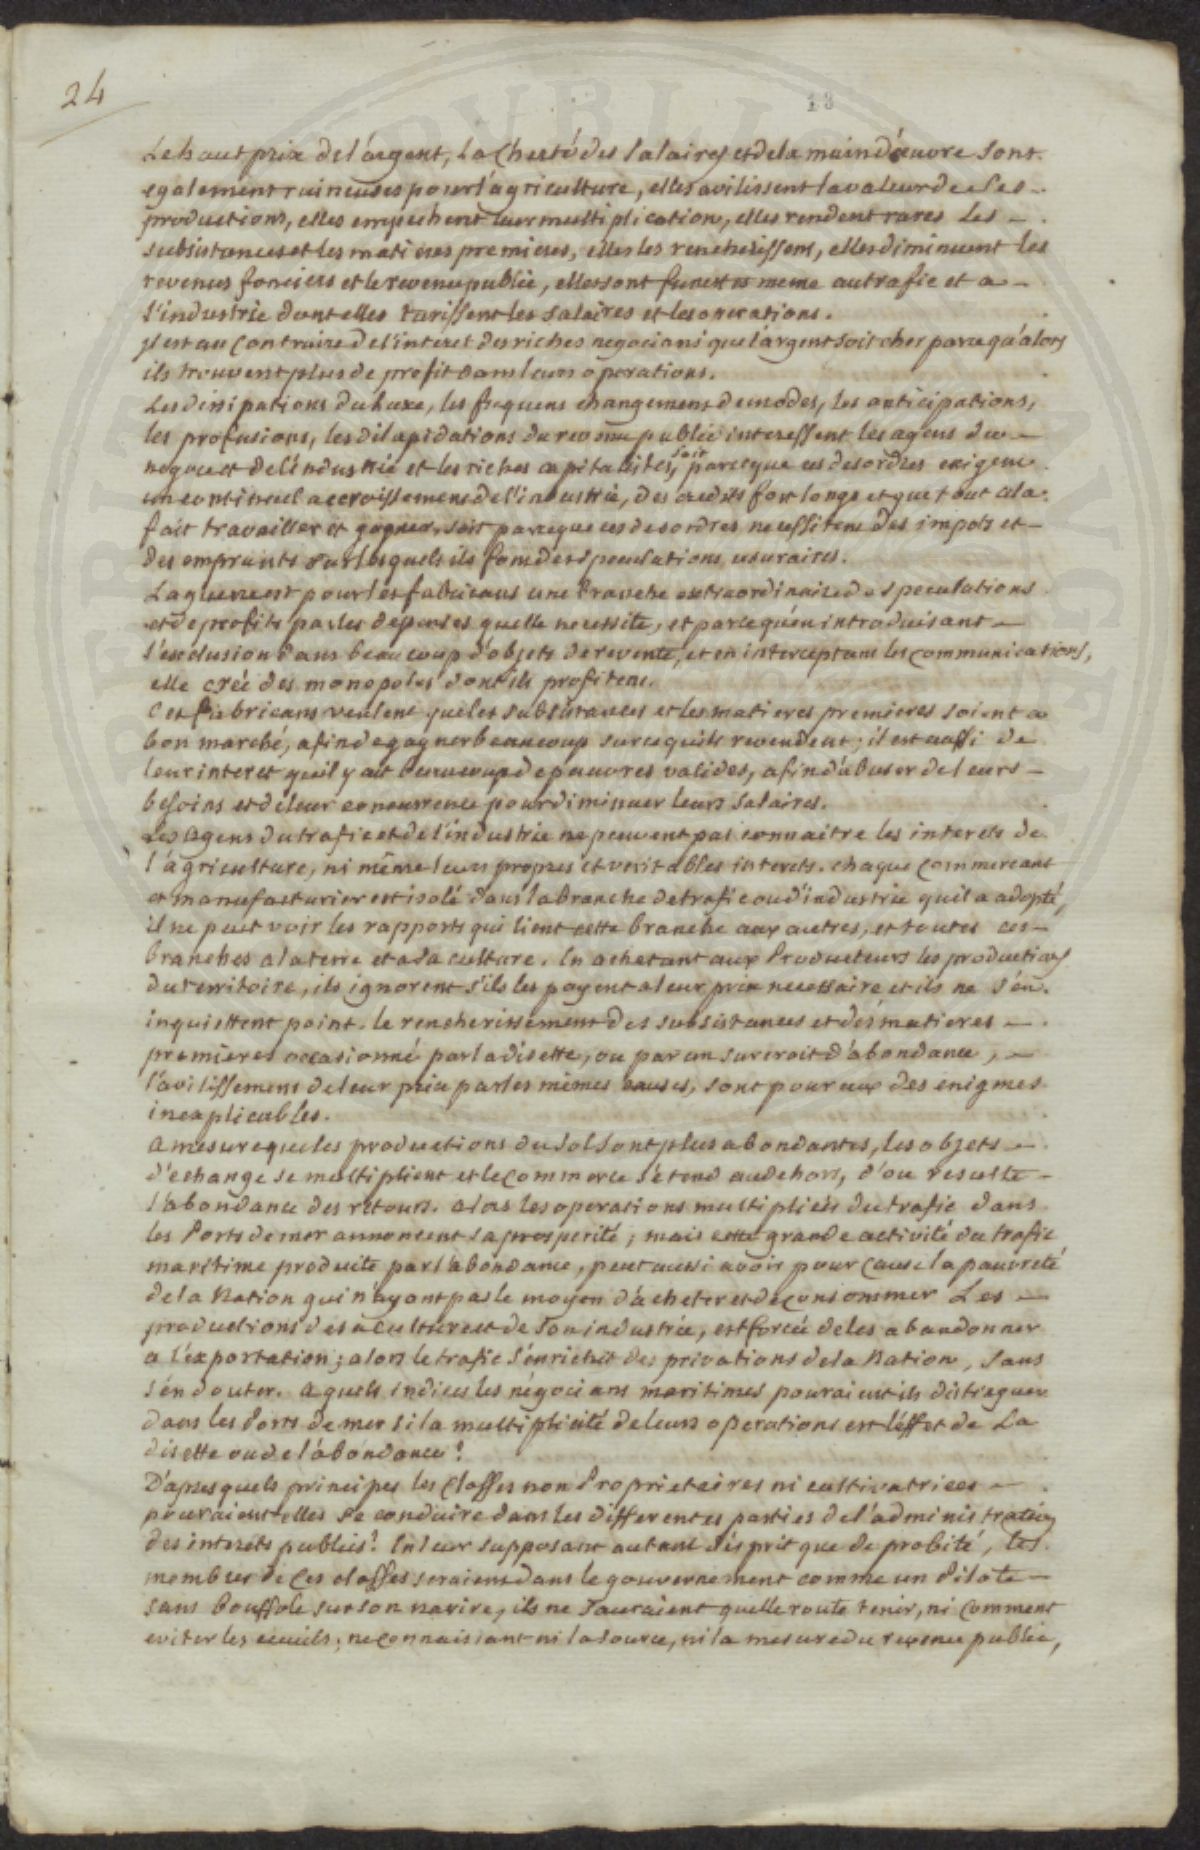 24
13
Le haut prix de l'argent, La Cherté des Salaires et de la main d'œuvre Sont
egalement ruineuses pour l'agriculture, elles avilissent la valeur de Ses
productions, elles empechent leur multiplication, elles rendent rares Les
subsistances et les matieres premieres, elles les rencherissent, elles diminuent les
revenus fonciers et le revenu public, elles sont funestes meme au trafic et a
l'industrie dont elles tarissent les salaires et les operations.
jl est au Contraire de l'interet des riches negocians que l'argent soit cher parce qu'alors
ils trouvent plus de profit dans leurs operations.
Les dissipations du luxe, les frequens changemens de modes, les anticipations,
les profusions, les dilapidations du revenu public interessent les agens du
negoce et de l'industrie et les riches capitalistes, soit parceque ces desordres exigent
un continuel accroissement de l'industrie, des credits fort longs et que tout cela
fait travailler et gagner, soit parceque ces desordres necessitent des impots et
des emprunts sur lesquels ils font des speculations usuraires.
La guerre est pour les fabricans une branche extraordinaire de speculations
et de profits par les depenses quelle necessite, et parcequ'en introduisant
l'exclusion dans beaucoup d'objets de revente, et en interceptant les communications,
elle crée des monopoles dont ils profitent.
Ces fabricans veulent que les subsistances et les matieres premieres soient a
bon marché, afin de gagner beaucoup sur ce qu'ils revendent; il est aussi de
leur interet qu'il y ait beaucoup de pauvres valides, afin d'abuser de leurs
besoins et de leur concurrence pour diminuer leurs salaires.
Les Agens du trafic et de l'industrie ne peuvent pas connaitre les interets de
l'agriculture, ni même leurs propres et veritables interets. chaque Commercant
et manufacturier est isolé dans la branche de trafic ou d'industrie qu'il a adopté,
il ne peut voir les rapports qui lient cette branche aux autres, et toutes ces
branches a la terre et a sa culture. En achetant aux Producteurs les productions
du territoire, ils ignorent s'ils les payent a leur prix necessaire et ils ne s'en
inquiettent point. le rencherissement des subsistances et des matieres
premieres occasionné par la disette, ou par un surcroit d'abondance,
l'avilissement de leur prix par les mêmes causes, sont pour eux des enigmes
inexplicables.
A mesure que les productions du Sol sont plus abondantes, les objets
d'echange se multiplient et le Commerce s'etend au dehors, d'ou resulte
l'abondance des retours. alors les operations multipliées du trafic dans
les Ports de mer annoncent sa prosperité; mais cette grande activité du trafic
maritime produite par l'abondance, peut aussi avoir pour Cause la pauvreté
de la Nation qui n'ayant pas le moyen d'acheter et de Consommer Les
productions de sa Culture et de Son industrie, est forcée de les abandonner
a l'exportation; alors le trafic s'enrichit des privations de la Nation, sans
s'en douter. a quels indices les négocians maritimes pouraient ils distinguer
dans les Ports de mer si la multiplicité de leurs operations est l'effet de La
disette ou de l'abondance?
D'apres quels principes les Classes non Proprietaires ni cultivatrices
pouraient elles se conduire dans les differentes parties de l'administration
des interets publics? En leur supposant autant d'esprit que de probité, les
membres de Ces classes seraient dans le gouvernement comme un Pilote
sans Boussole sur son navire, ils ne Sauraient quelle route tenir, ni Comment
eviter les ecueils; ne connaissant ni la source, ni la mesure du revenu public,